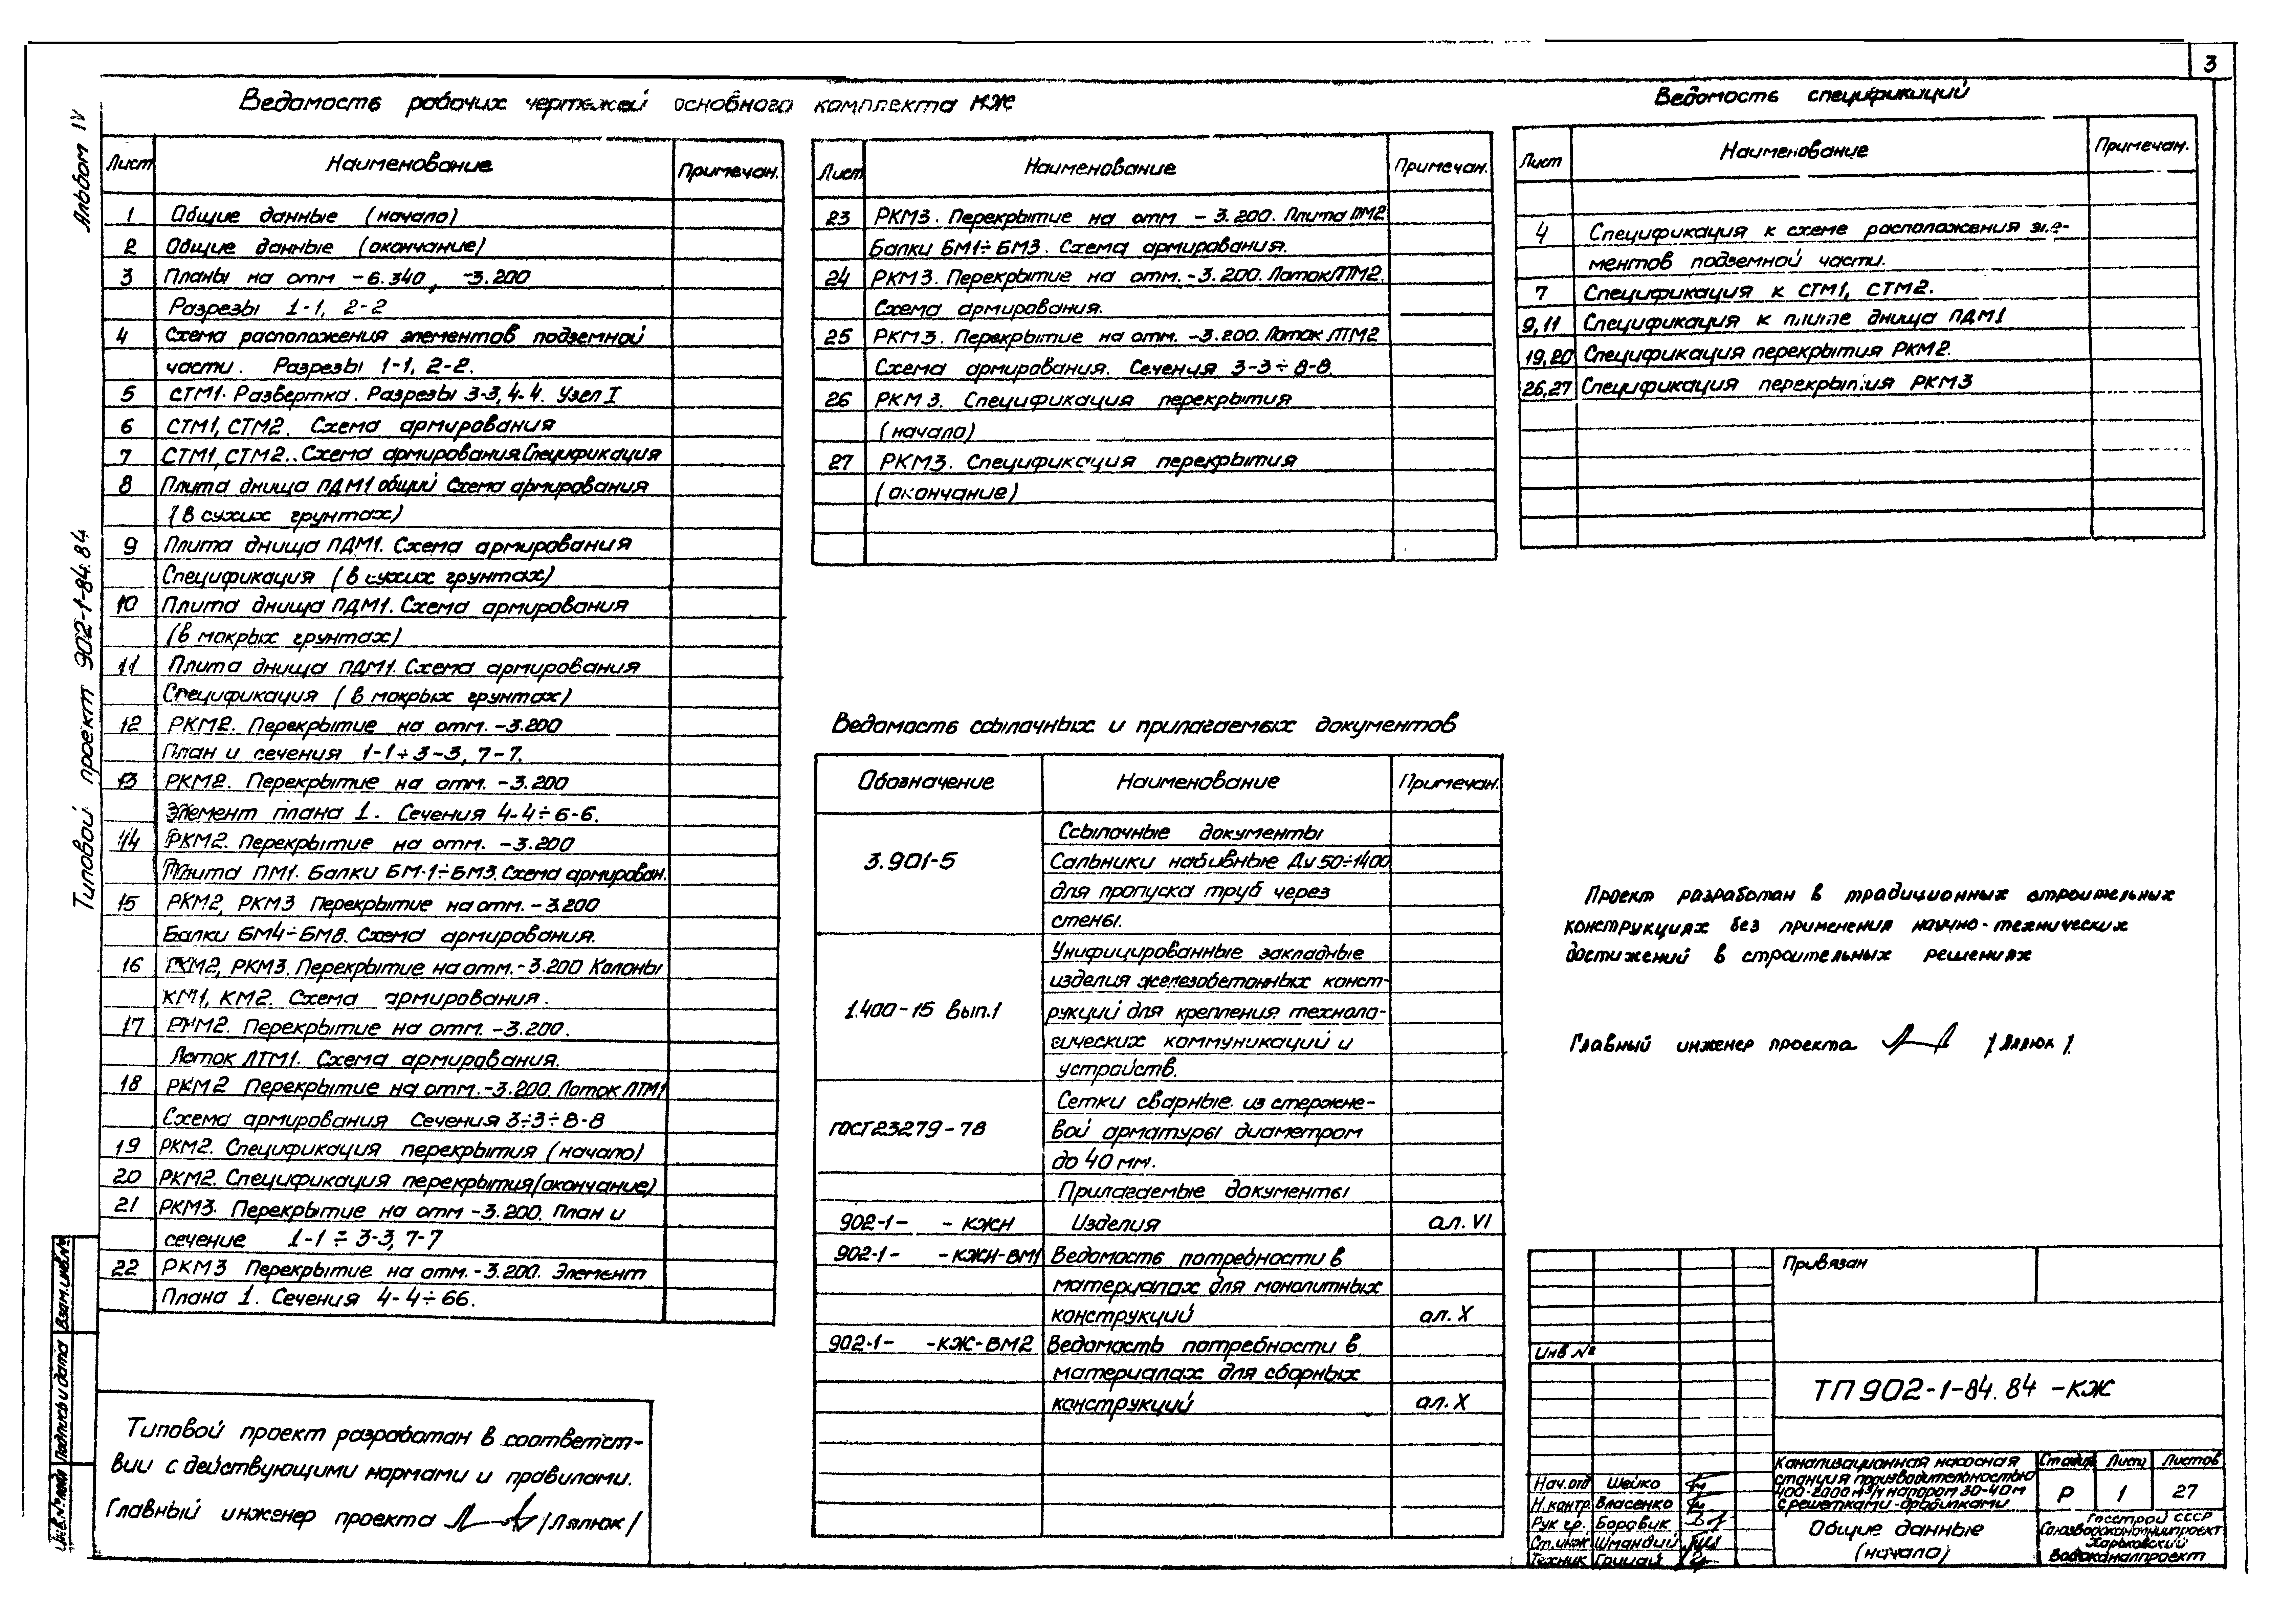 3
Альбом IV
Типовой проект 902-1-84.84
Ведомость рабочих чертежей основного комплекта КЖ
Лист Наименование Примечан.
1 Общие данные (начало)
2 Общие данные (окончание)
3 Планы на отм -6.340, -3.200
Разрезы 1-1, 2-2
4 Схема расположения элементов подземной
части. Разрезы 1-1, 2-2.
5 СТМ1. Развертка. Разрезы 3-3, 4-4. Узел I
6 СТМ1, СТМ2. Схема армирования
7 СТМ1, СТМ2. Схема армирования.Спецификация
8 Плита днища ПДМ1 общий Схема армирования
(в сухих грунтах)
9 Плита днища ПДМ1. Схема армирования
Спецификация (в сухих грунтах)
10 Плита днища ПДМ1. Схема армирования
(в мокрых грунтах)
11 Плита днища ПДМ1. Схема армирования
Спецификация (в мокрых грунтах)
12 РКМ2. Перекрытие на отм. -3.200
План и сечения 1-1÷3-3, 7-7.
13 РКМ2. Перекрытие на отм. -3.200
Элемент плана 1. Сечения 4-4÷6-6.
14 РКМ2. Перекрытие на отм. -3.200
Плита ПМ1. Балки БМ-1÷БМ3. Схема армирован.
15 РКМ2, РКМ3 Перекрытие на отм. -3.200
Балки БМ4÷БМ8. Схема армирования.
16 РКМ2, РКМ3. Перекрытие на отм.-3.200 Колоны
КМ1, КМ2. Схема армирования.
17 РКМ2. Перекрытие на отм. -3.200.
Лоток ЛТМ1. Схема армирования.
18 РКМ2 Перекрытие на отм.-3.200. Лоток ЛТМ1
Схема армирования Сечения 3÷3÷8-8
19 РКМ2. Спецификация перекрытия (начало)
20 РКМ2. Спецификация перекрытия(окончание)
21 РКМ3. Перекрытие на отм -3.200. План и
сечение 1-1 ÷ 3-3, 7-7
22 РКМ3 Перекрытие на отм.-3.200. Элемент
Плана 1. Сечения 4-4÷66.
Лист Наименование Примечан.
23 РКМ3. Перекрытие на отм -3.200. Плита ПМ2
Балки БМ1÷БМ3. Схема армирования.
24 РКМ3. Перекрытие на отм.-3.200. Лоток ЛТМ2.
Схема армирования.
25 РКМ3. Перекрытие на отм. -3.200. Лоток ЛТМ2
Схема армирования. Сечения 3-3÷8-8.
26 РКМ3. Спецификация перекрытия
(начало)
27 РКМ3. Спецификация перекрытия
(окончание)
Ведомость спецификаций
Лист Наименование Примечан.
4 Спецификация к схеме расположения эле-
ментов подземной части.
7 Спецификация к СТМ1, СТМ2.
9,11 Спецификация к плите днища ПДМ1
19,20 Спецификация перекрытия РКМ2.
26,27 Спецификация перекрытия РКМ3
Ведомость ссылочных и прилагаемых документов
Обозначение Наименование Примечан.
Ссылочные документы
3.901-5 Сальники набивные Ду 50÷1400
для пропуска труб через
стены.
Унифицированные закладные
изделия железобетонных конст-
1.400-15 вып.1 рукций для крепления техноло-
гических коммуникаций и
устройств.
Сетки сварные из стержне-
ГОСТ 23279-78 вой арматуры диаметром
до 40 мм.
Прилагаемые документы
902-1- - КЖН Изделия ал. VI
902-1- -КЖН-ВМ1 Ведомость потребности в
материалах для монолитных
конструкций ал. X
902-1- -КЖ-ВМ2 Ведомость потребности в
материалах для сборных
конструкций ал. X
Проект разработан в традиционных строительных
конструкциях без применения научно-технических
достижений в строительных решениях
Главный инженер проекта /Лялюк/
Типовой проект разработан в соответст-
вии с действующими нормами и правилами.
Главный инженер проекта /Лялюк/
Взам.инв.№
Подпись и дата
Инв.№ подл
Привязан
Инв №
ТП 902-1-84.84 -КЖ
Нач.отд Шейко
Н.контр. Власенко
Рук гр. Боровик
Ст.инж Шмандий
Техник Грицай
Канализационная насосная
станция производительностью
400-2000 м³/ч напором 30-40м
с решетками-дробилками
Стадия Лист Листов
Р 1 27
Общие данные
(начало)
Госстрой СССР
Союзводоканалниипроект
Харьковский
Водоканалпроект